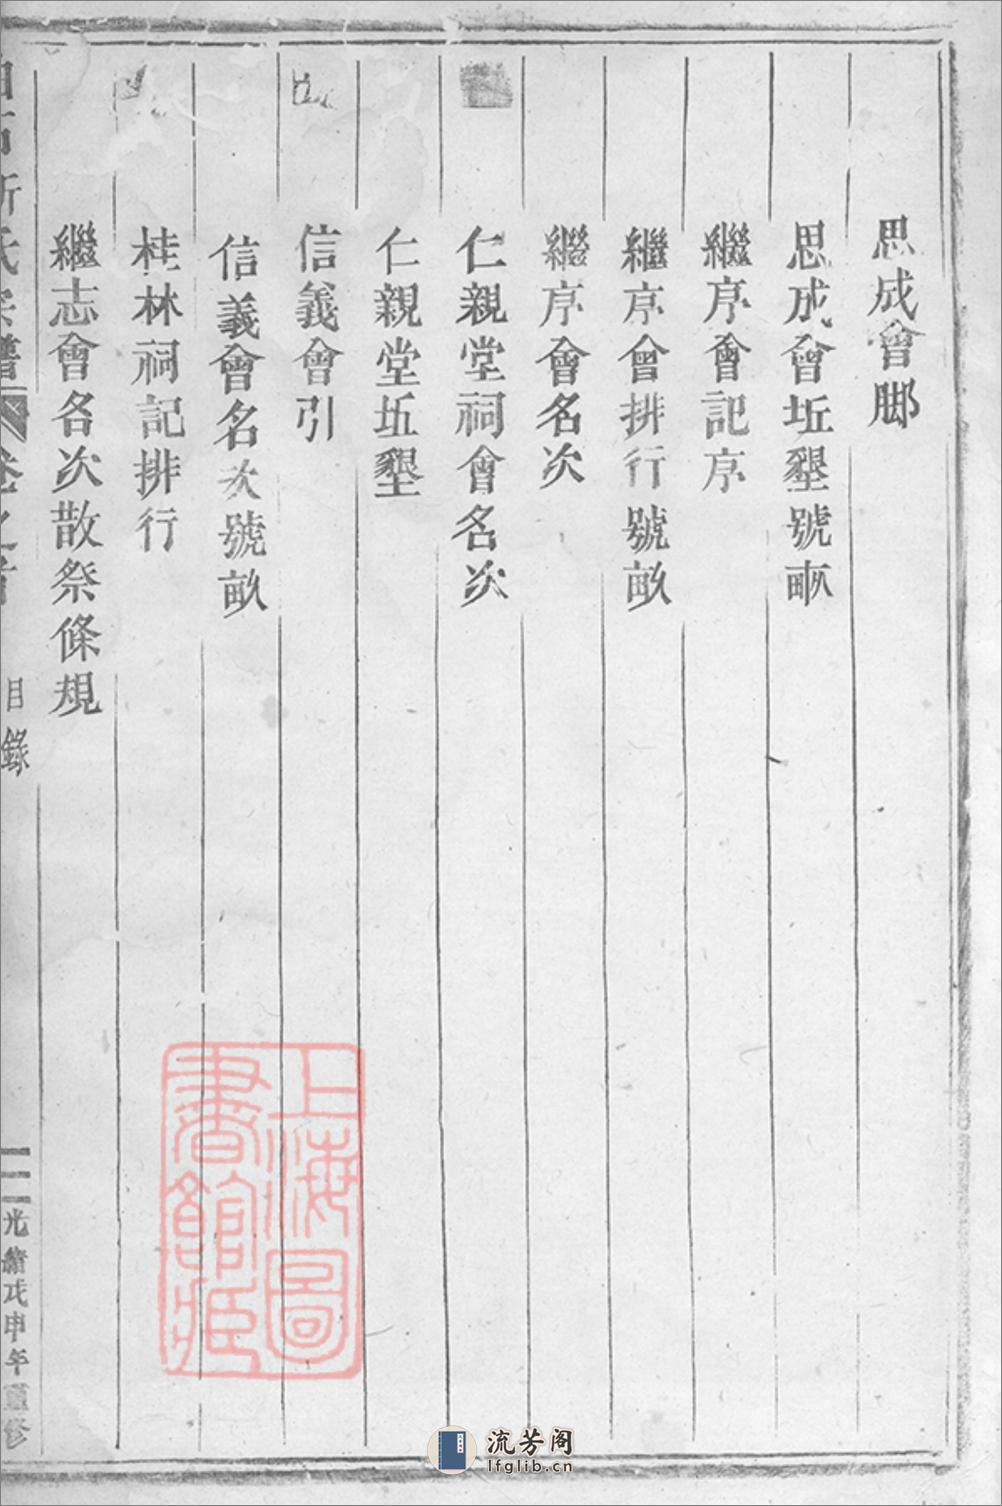 思成會脚
思成會坵墾號畝
繼序會記序
繼序會排行號畝
繼序會名次
仁親堂祠會名次
仁親堂坵墾
信義會引
信義會名次號畝
桂林祠記排行
繼志會各次散祭條規
氏宗譜 卷之首 目錄 二 光緒戊申年重修
上海圖書館藏
流芳阁
lfglib.cn